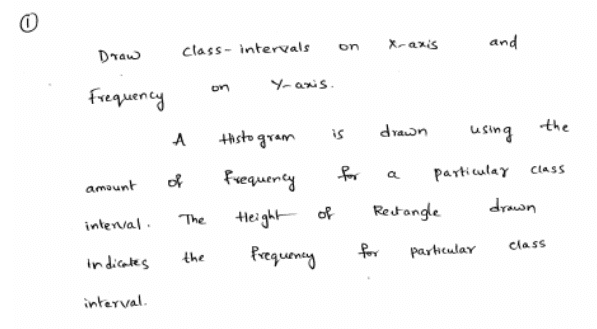 ①
Draw class-intervals on X-axis and
Frequency on Y-axis.
A Histogram is drawn using the
amount of frequency for a particular class
interval. The Height of Rectangle drawn
indicates the frequency for particular class
interval.